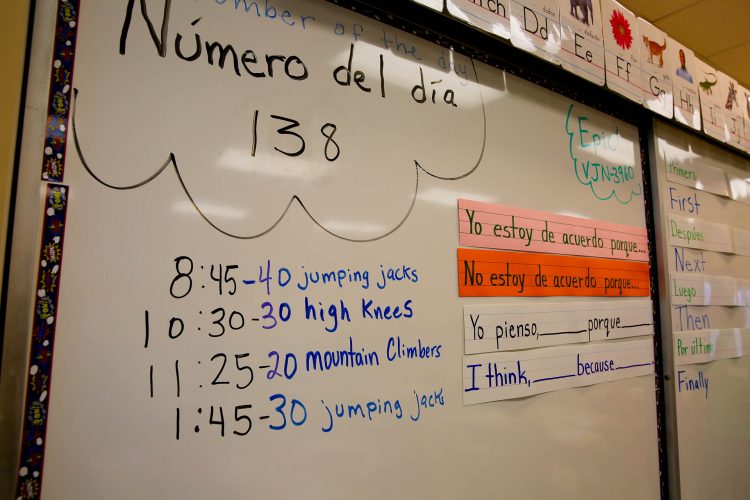 number of the day
Número del día
138
Epic!
VJN-3960
8:45-40 jumping jacks
10:30-30 high Knees
11:25-20 mountain Climbers
1:45-30 jumping jacks
Yo estoy de acuerdo porque...
No estoy de acuerdo porque...
Yo pienso,______porque______
I think,______because______
Dd
Ee
Ff
Gg
Hh
Ii
Jj
Primero
First
Después
Next
Luego
Then
Por últim
Finally